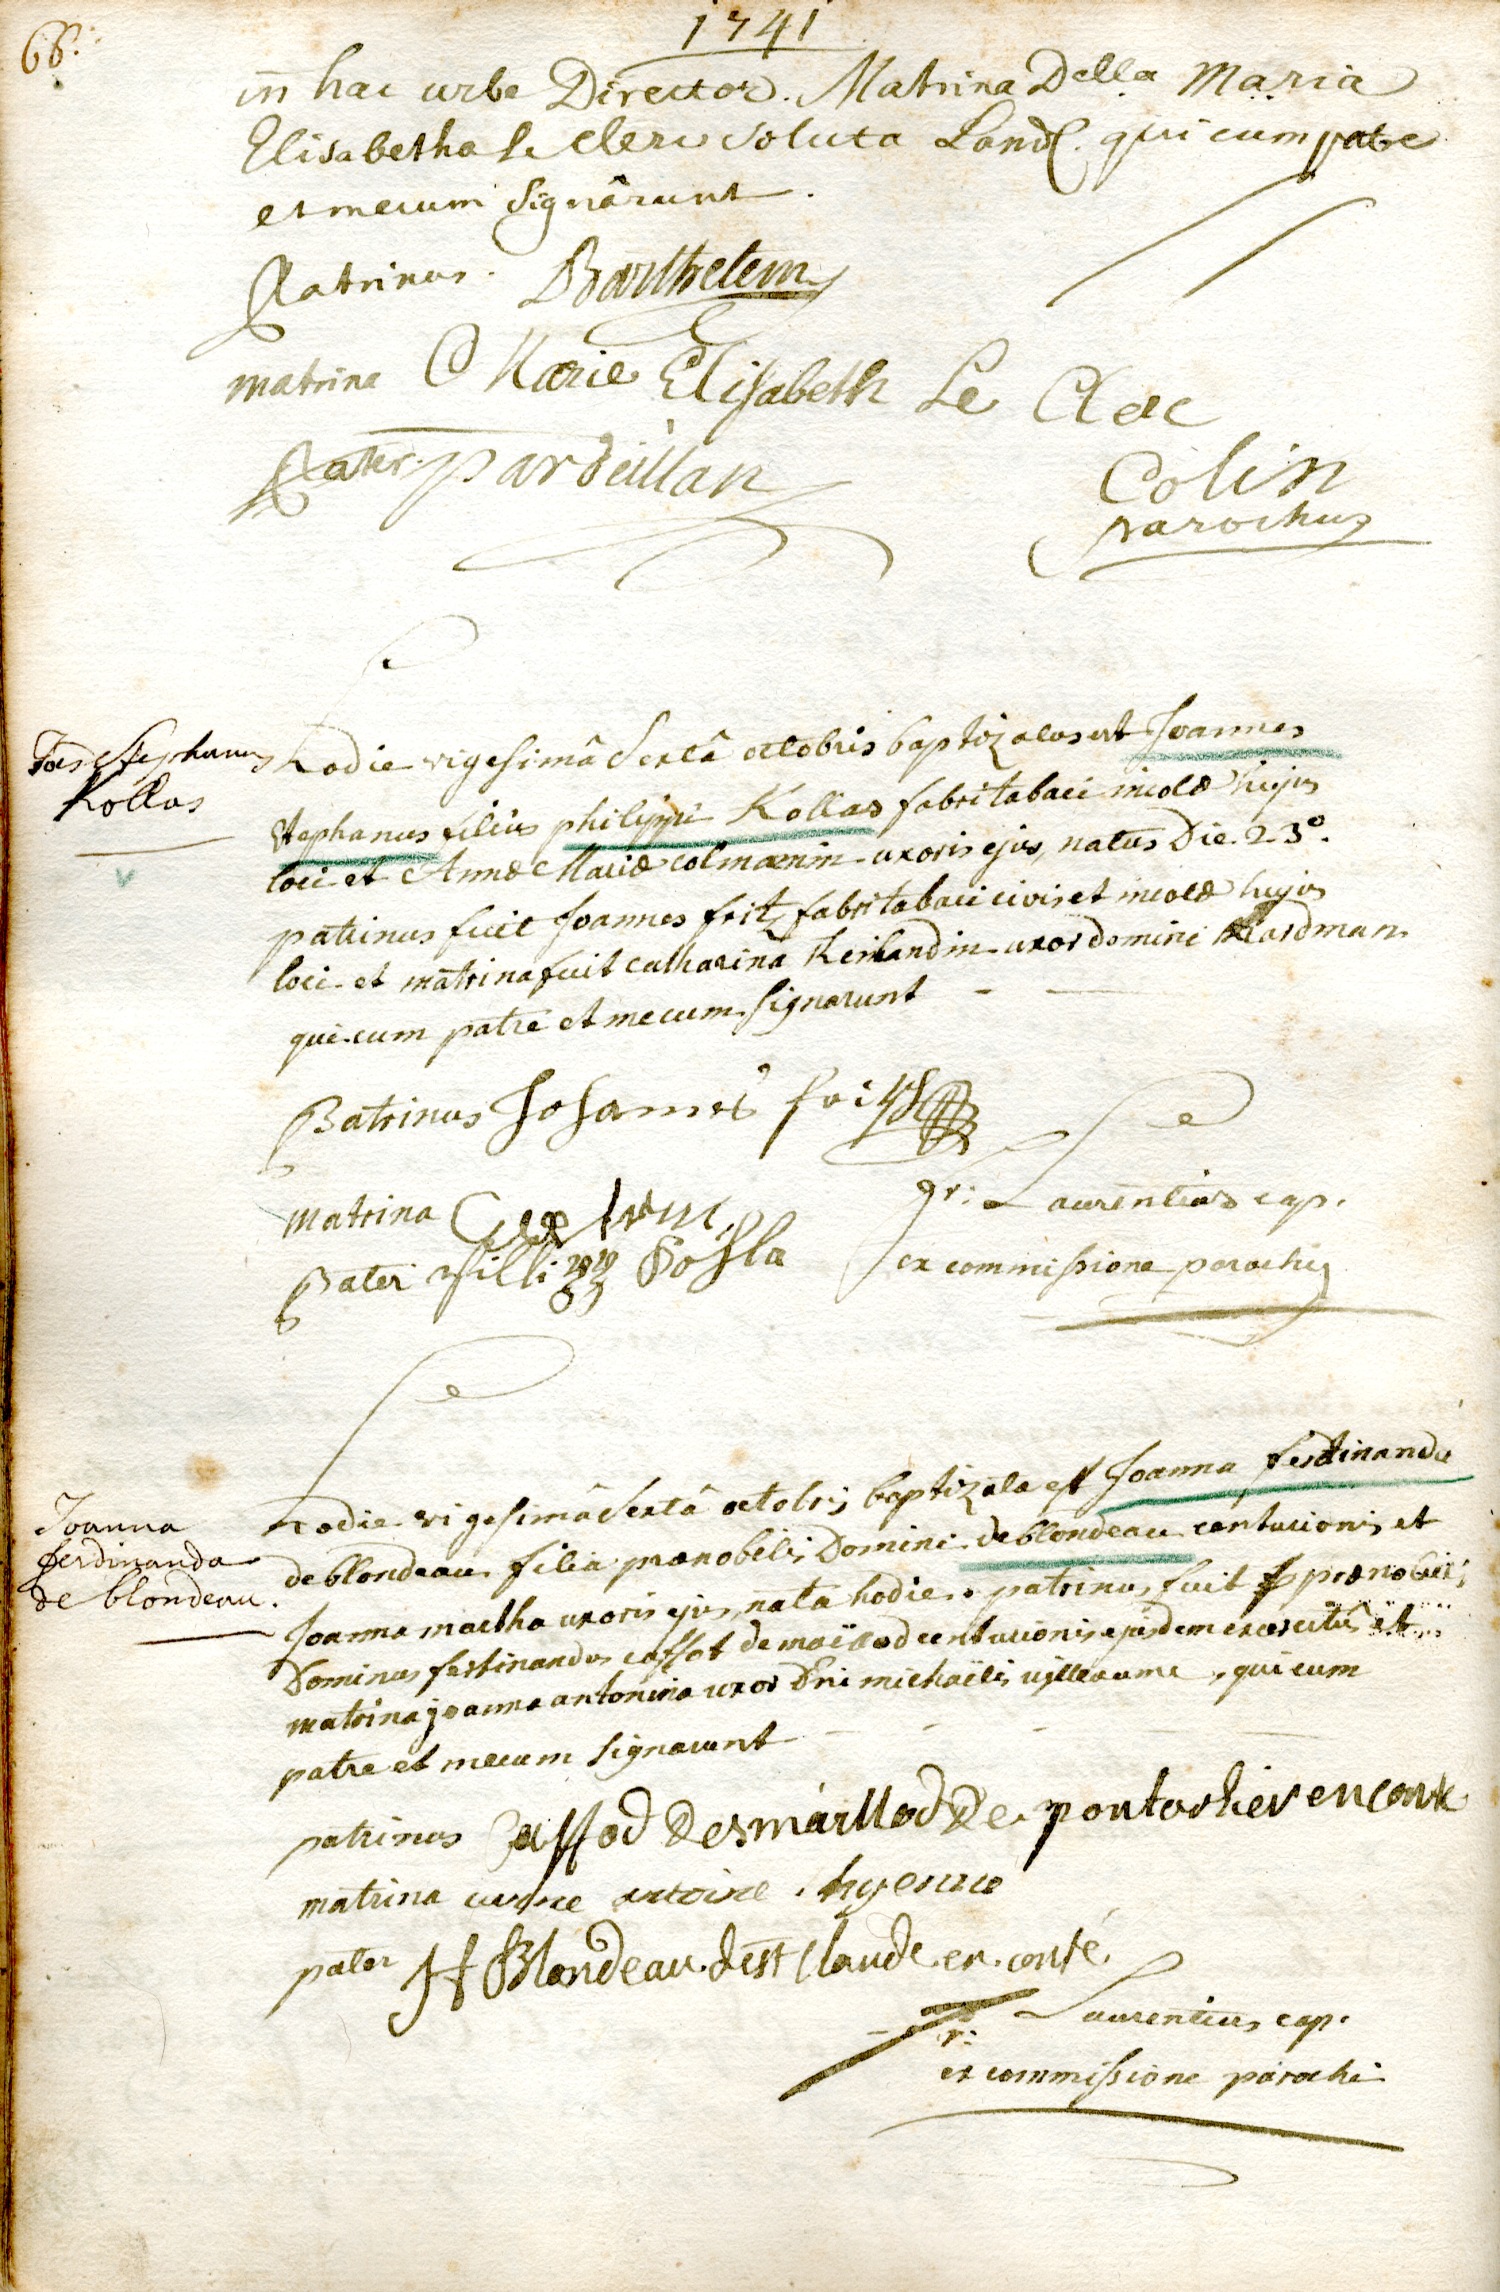 66.
1741
in hac urbe Director. Matrina Della Maria
Elisabetha le Clerc soluta Land. qui cum patre
et mecum signârunt.
Patrinus. Barthelemy
matrina Marie Elisabeth Le Clerc
Pater. pardeillan
Colin
parochus
Joes Stephanus
Kollas
hodie vigesimâ sextâ octobris baptizatus est Joannes
stephanus filius philippi Kollas fabri tabaci incolæ hujus
loci et Annæ Mariæ colmanin uxoris ejus, natus Die 23°.
patrinus fuit Joannes fritz fabri tabaci civis et incolæ hujus
loci et matrina fuit catharina Keilandin uxor domini Hardman
qui cum patre et mecum signarunt
Patrinus Johannes fritz
matrina
Pater
fr: Laurentius cap.
ex commissione parochi
Joanna
ferdinanda
de blondeau.
hodie vigesimâ sextâ octobris baptizata est Joanna ferdinanda
de blondeau filia prænobilis Domini de blondeau centurionis et
Joanna martha uxoris ejus, nata hodie. patrinus fuit prænobilis
Dominus ferdinandus cassot de centurionis ejusdem exercitûs et
matrina joanna antonina uxor Dni michaëlis villeaume, qui cum
patre et mecum signarunt
patrinus Cassod Desmaillod De pontarlier en conte
matrina antoine
pater Blondeau de st Claude en conté
fr: Laurentius cap.
ex commissione parochi